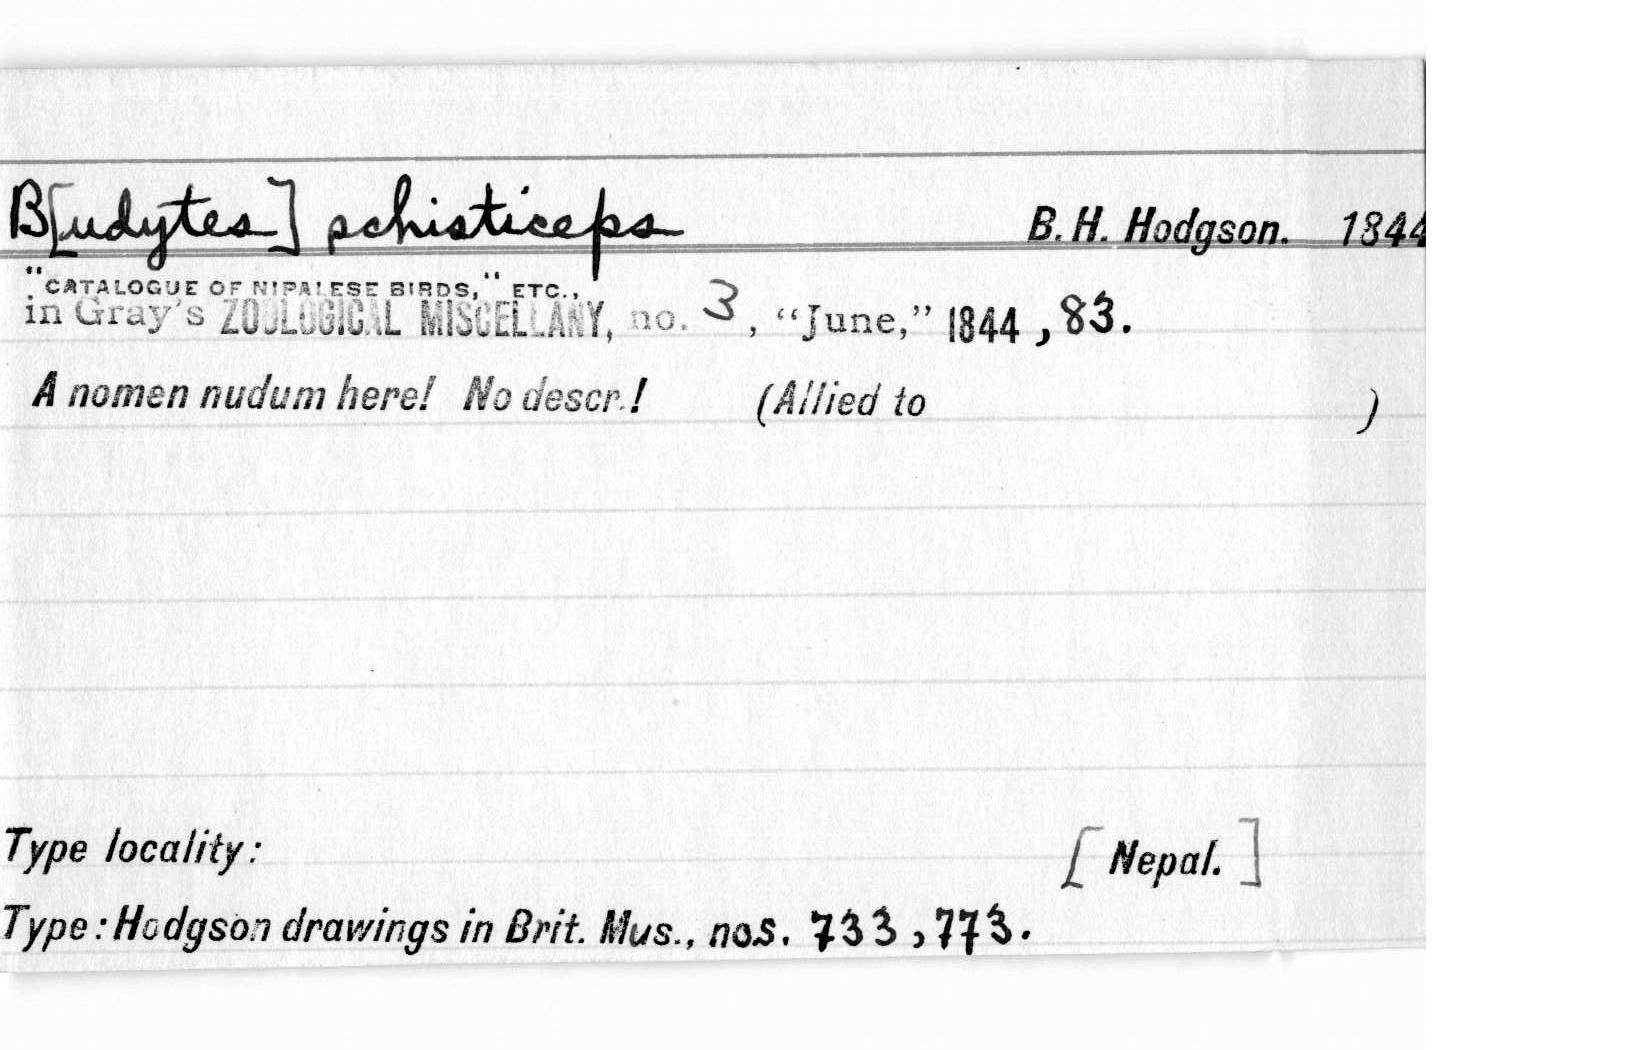 B[udytes] schisticeps B. H. Hodgson. 1844
"CATALOGUE OF NIPALESE BIRDS," ETC.,
in Gray's ZOOLOGICAL MISCELLANY, no. 3, "June," 1844, 83.
A nomen nudum here! No descr.! (Allied to )
Type locality: [Nepal.]
Type: Hodgson drawings in Brit. Mus., nos. 733, 773.